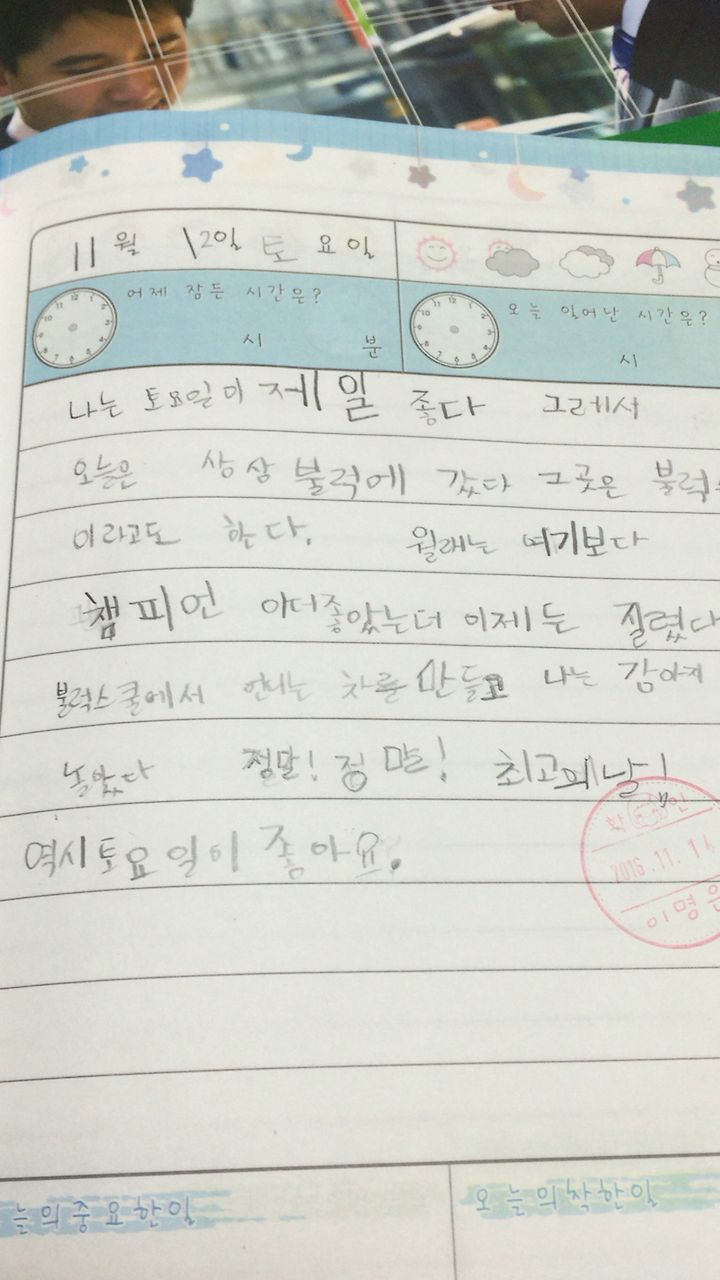 11월 12일 토요일
어제 잠든 시간은?
시 분
오늘 일어난 시간은?
시
나는 토요일이 제일 좋다 그레서
오늘은 상상 블럭에 갔다 그곳은 블럭
이라고도 한다. 월래는 여기보다
챔피언 아더좋았는더 이제는 질렸다
블럭스쿨에서 언니는 차를 만들고 나는 감아지
놀았다 정말! 정말! 최고의날!
역시토요일이 좋아요.
확인
2016.11.14
이명은
늘의중요한일
오늘의착한일